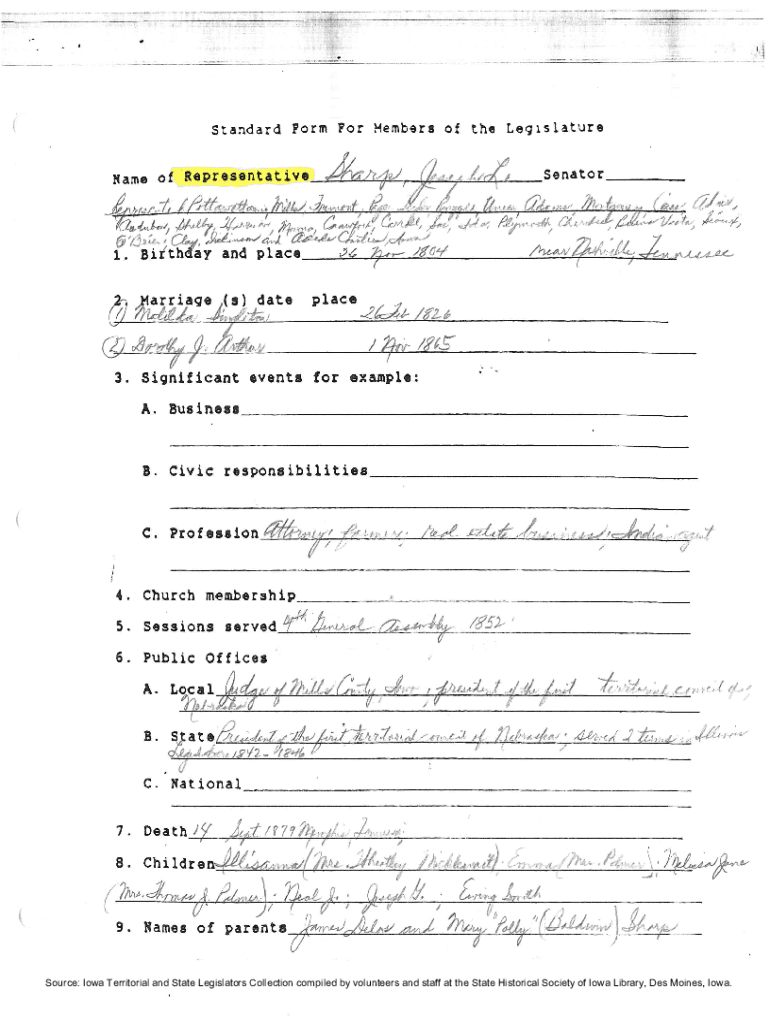 Standard Form For Members of the Legislature
Name of Representative Sharp, Joseph L. Senator
Represents Pottawattamie, Mills, Fremont, Page, Union, Adams, Montgomery, Cass, Adair,
Audubon, Shelby, Harrison, Monona, Crawford, Carroll, Sac, Ida, Plymouth, Cherokee, Buena Vista, Sioux,
O'Brien, Clay, Dickinson and Counties, Iowa
1. Birthday and place 26 Nov 1804 near Nashville, Tennessee
2. Marriage (s) date place
(1) Matilda Singleton 26 Feb 1826
(2) Dorothy J. Arthur 1 Nov 1865
3. Significant events for example:
A. Business
B. Civic responsibilities
C. Profession Attorney; farmer; real estate business; India agent
4. Church membership
5. Sessions served 4th General Assembly 1852
6. Public Offices
A. Local Judge of Mills County, Iowa; president of the first territorial council of
Nebraska
B. State President of the first territorial council of Nebraska; served 2 terms in Illinois
Legislature 1842-1846
C. National
7. Death 14 Sept 1879 Memphis, Tennessee
8. Children Illisanna (Mrs. Wheatley Micklewait); Emma (Mrs. Palmer); Melissa Jane
(Mrs. Thomas J. Palmer); Neal Jr.; Joseph G.; Ewing South
9. Names of parents James Delos and Mary "Polly" (Baldwin) Sharp
Source: Iowa Territorial and State Legislators Collection compiled by volunteers and staff at the State Historical Society of Iowa Library, Des Moines, Iowa.